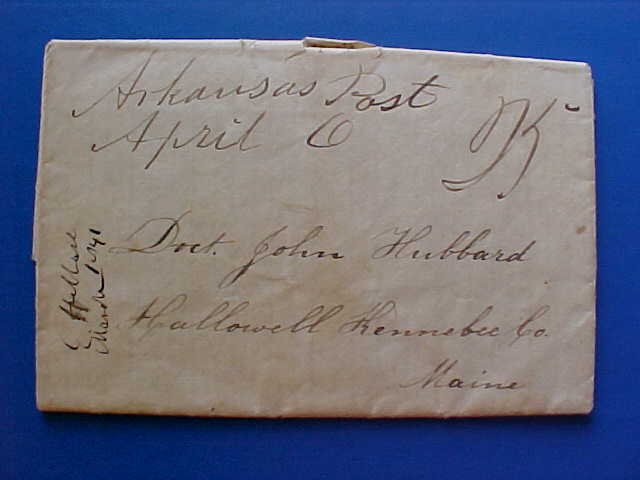 Arkansas Post
April 6
Doct. John Hubbard
Hallowell Kennebec Co.
Maine
March 1841